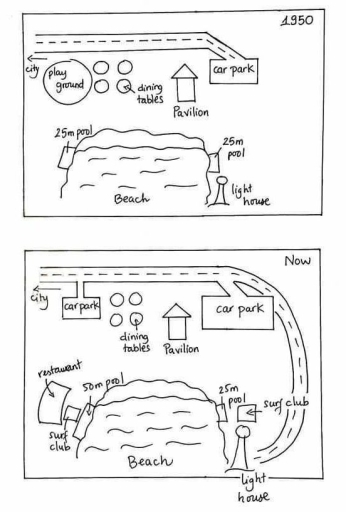 1950
city
play
ground
dining
tables
Pavilion
car park
25m pool
25m
pool
light
house
Beach
Now
city
car park
dining
tables
Pavilion
car park
restaurant
50m pool
25m
pool
surf club
surf
club
Beach
light
house